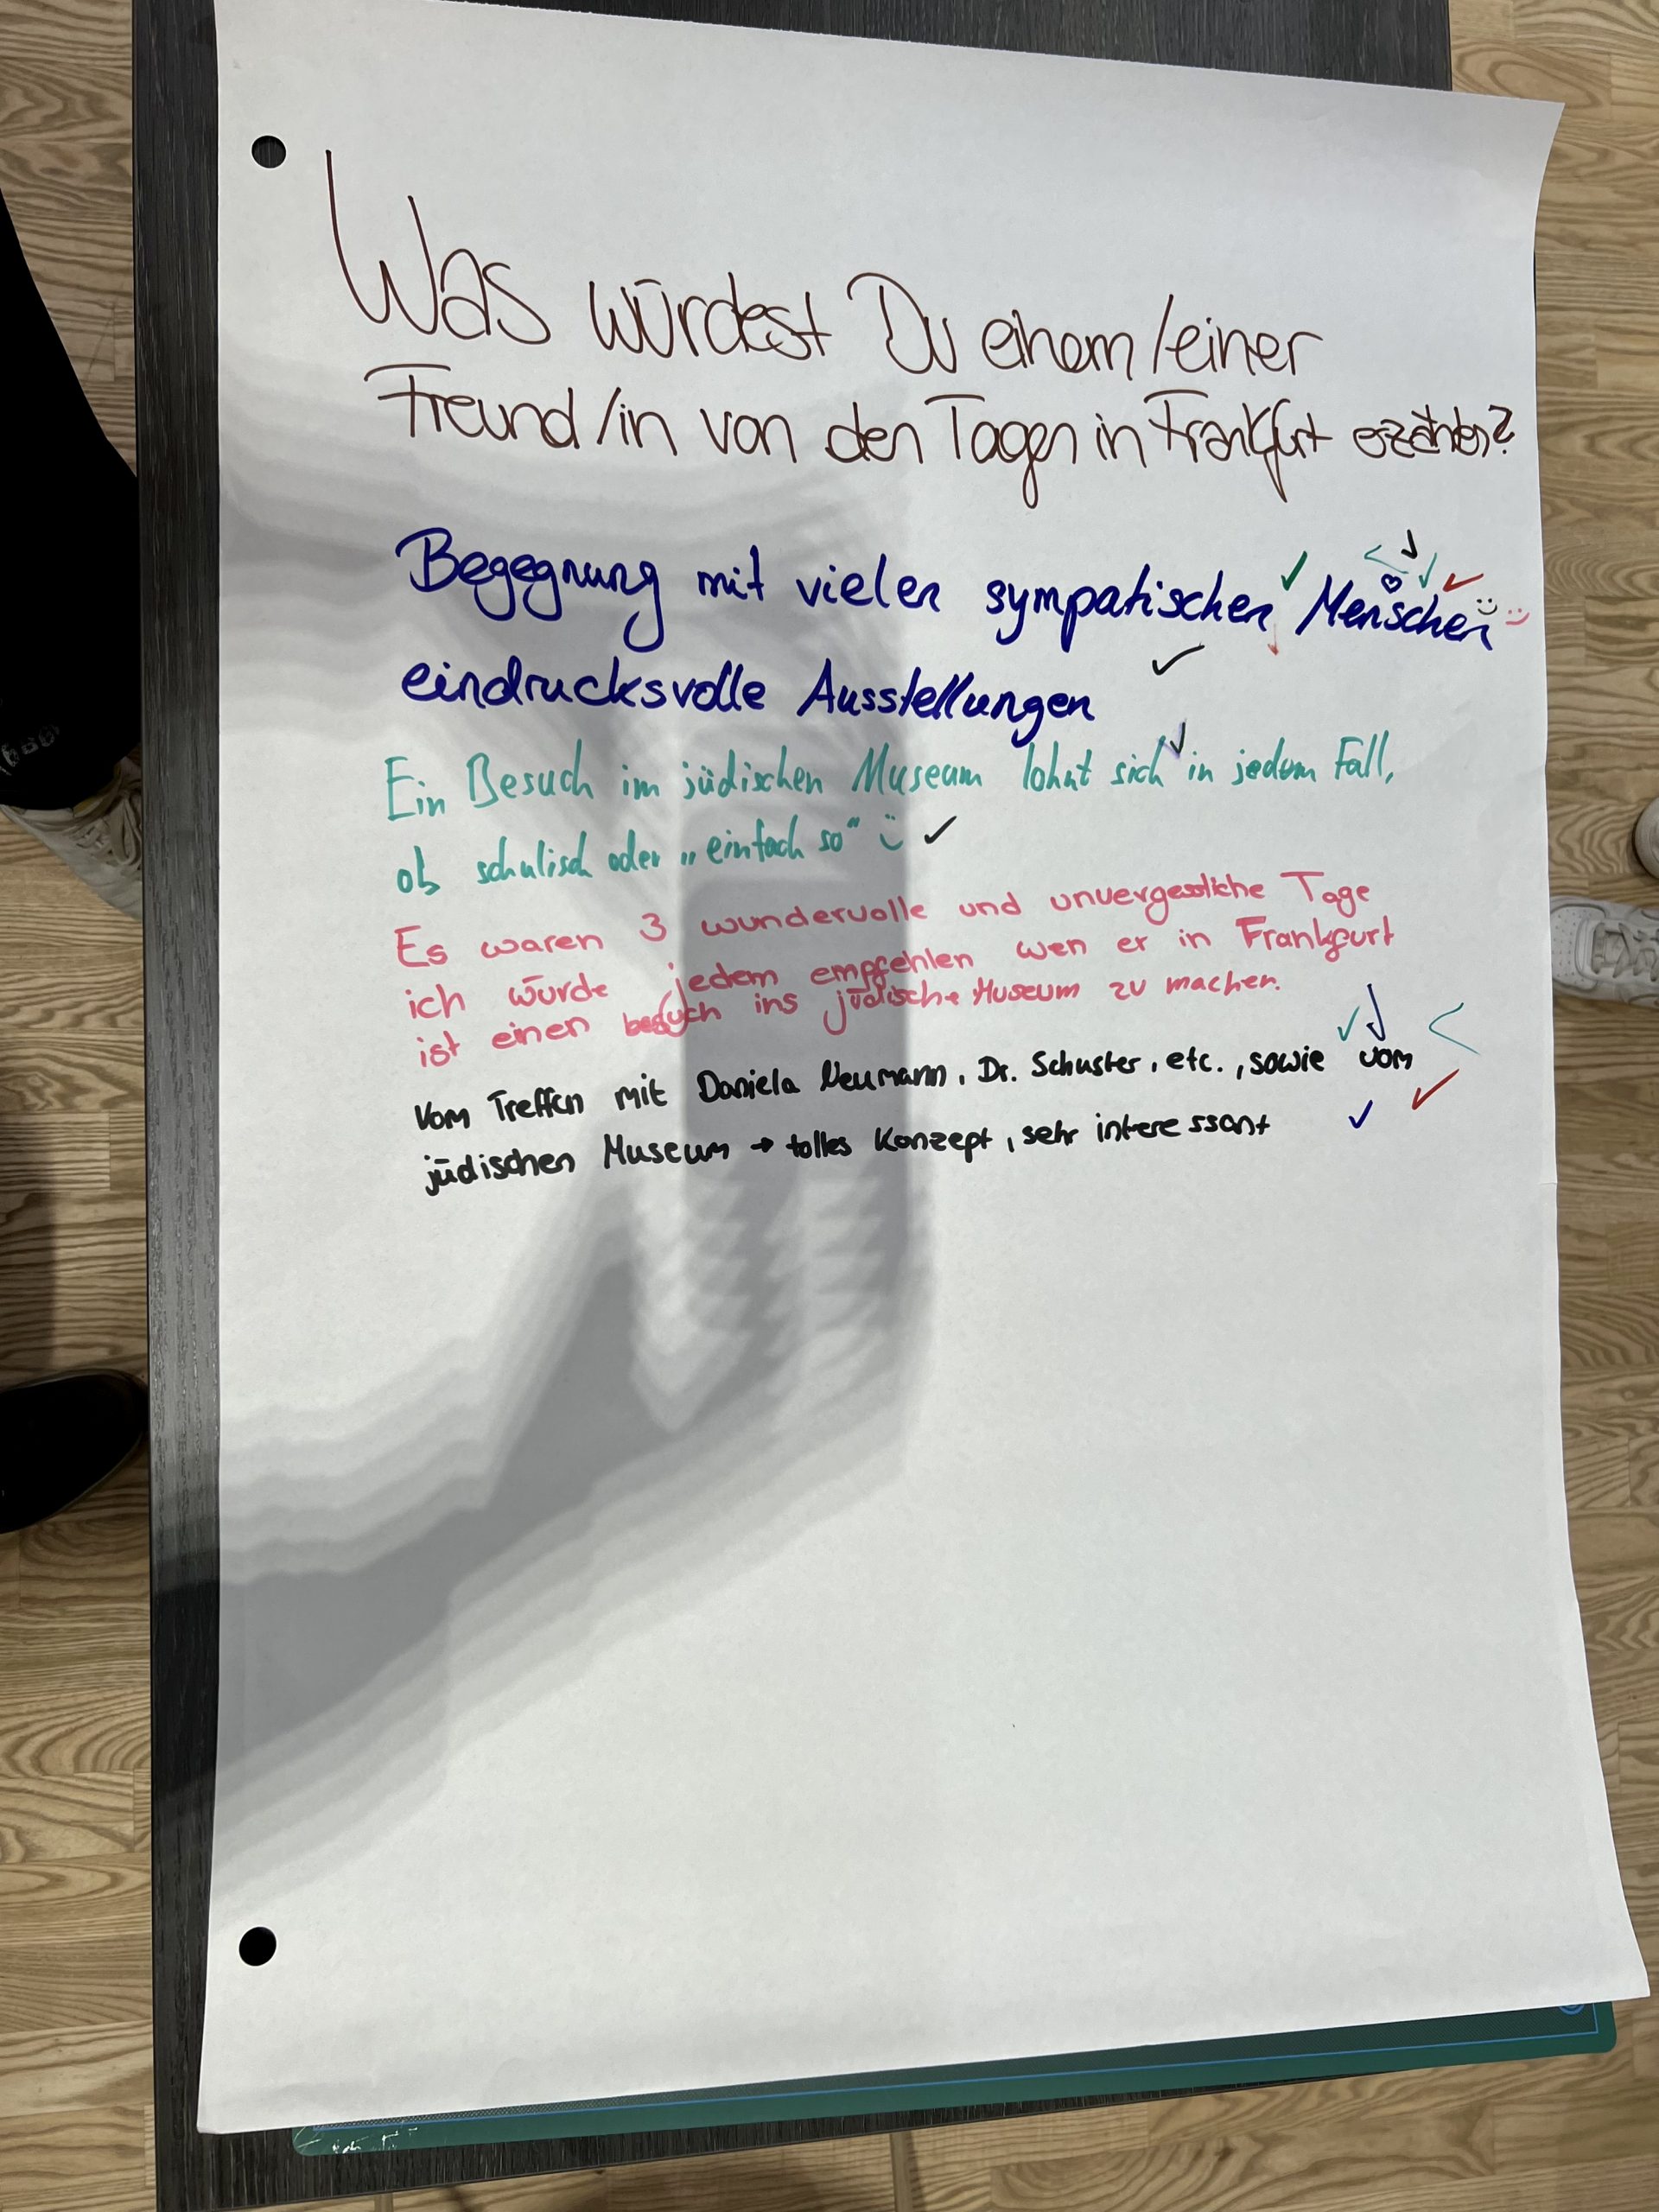 Was würdest Du einem/einer
Freund/in von den Tagen in Frankfurt erzählen?
Begegnung mit vielen sympatischen Menschen
eindrucksvolle Ausstellungen
Ein Besuch im jüdischen Museum lohnt sich in jedem Fall,
ob schulisch oder „einfach so“ :)
Es waren 3 wundervolle und unvergessliche Tage
ich würde jedem empfehlen wen er in Frankfurt
ist einen besuch ins jüdische Museum zu machen.
Vom Treffen mit Daniela Neumann, Dr. Schuster, etc., sowie vom
jüdischen Museum → tolles Konzept, sehr interessant